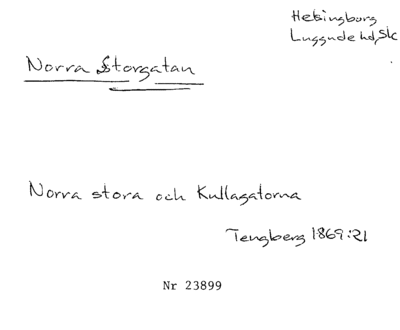 Helsingborg
Luggude hd, Sk
Norra Storgatan
Norra stora och Kullagatorna
Tengberg 1869:21
Nr 23899